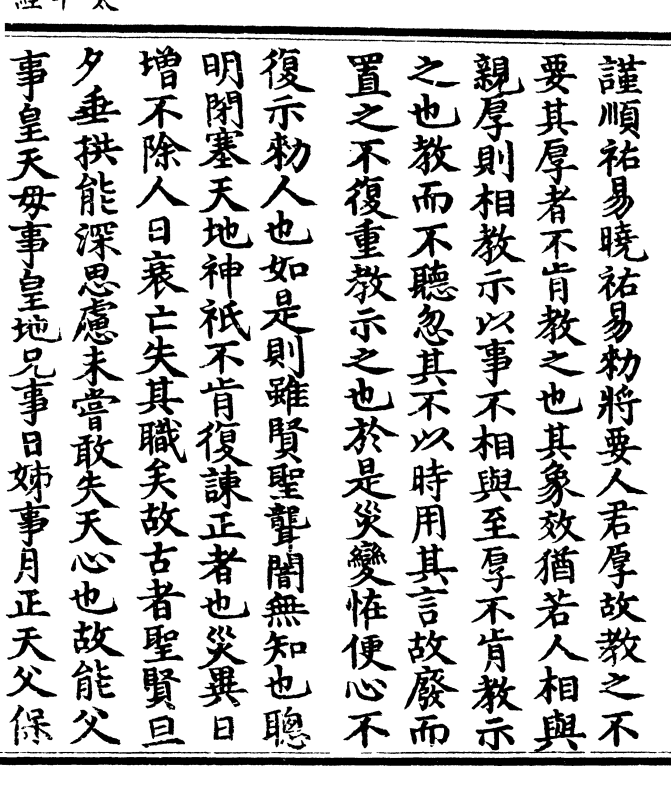 謹順祐易曉祐易勑將要人君厚故教之不
要其厚者不肯教之也其象效猶若人相與
親厚則相教示以事不相與至厚不肯教示
之也教而不聽忽其不以時用其言故廢而
置之不復重教示之也於是災變恠便心不
復示勑人也如是則雖賢聖聾闇無知也聰
明閉塞天地神祇不肯復諫正者也災異日
增不除人日衰亡失其職矣故古者聖賢旦
夕垂拱能深思慮未嘗敢失天心也故能父
事皇天母事皇地兄事日姊事月正天父保